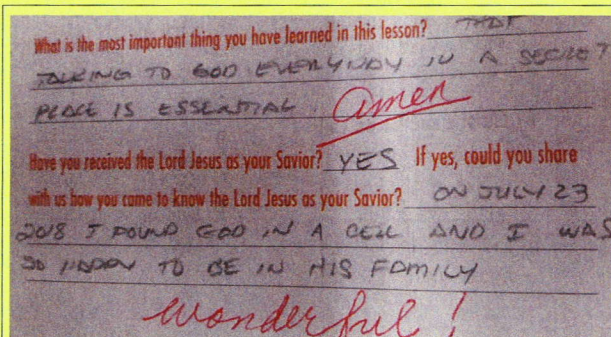 What is the most important thing you have learned in this lesson? THAT
TALKING TO GOD EVERYDAY IN A SECRET
PLACE IS ESSENTIAL. Amen
Have you received the Lord Jesus as your Savior? YES If yes, could you share
with us how you came to know the Lord Jesus as your Savior? ON JULY 23
2018 I FOUND GOD IN A CELL AND I WAS
SO HAPPY TO BE IN HIS FAMILY
wonderful!